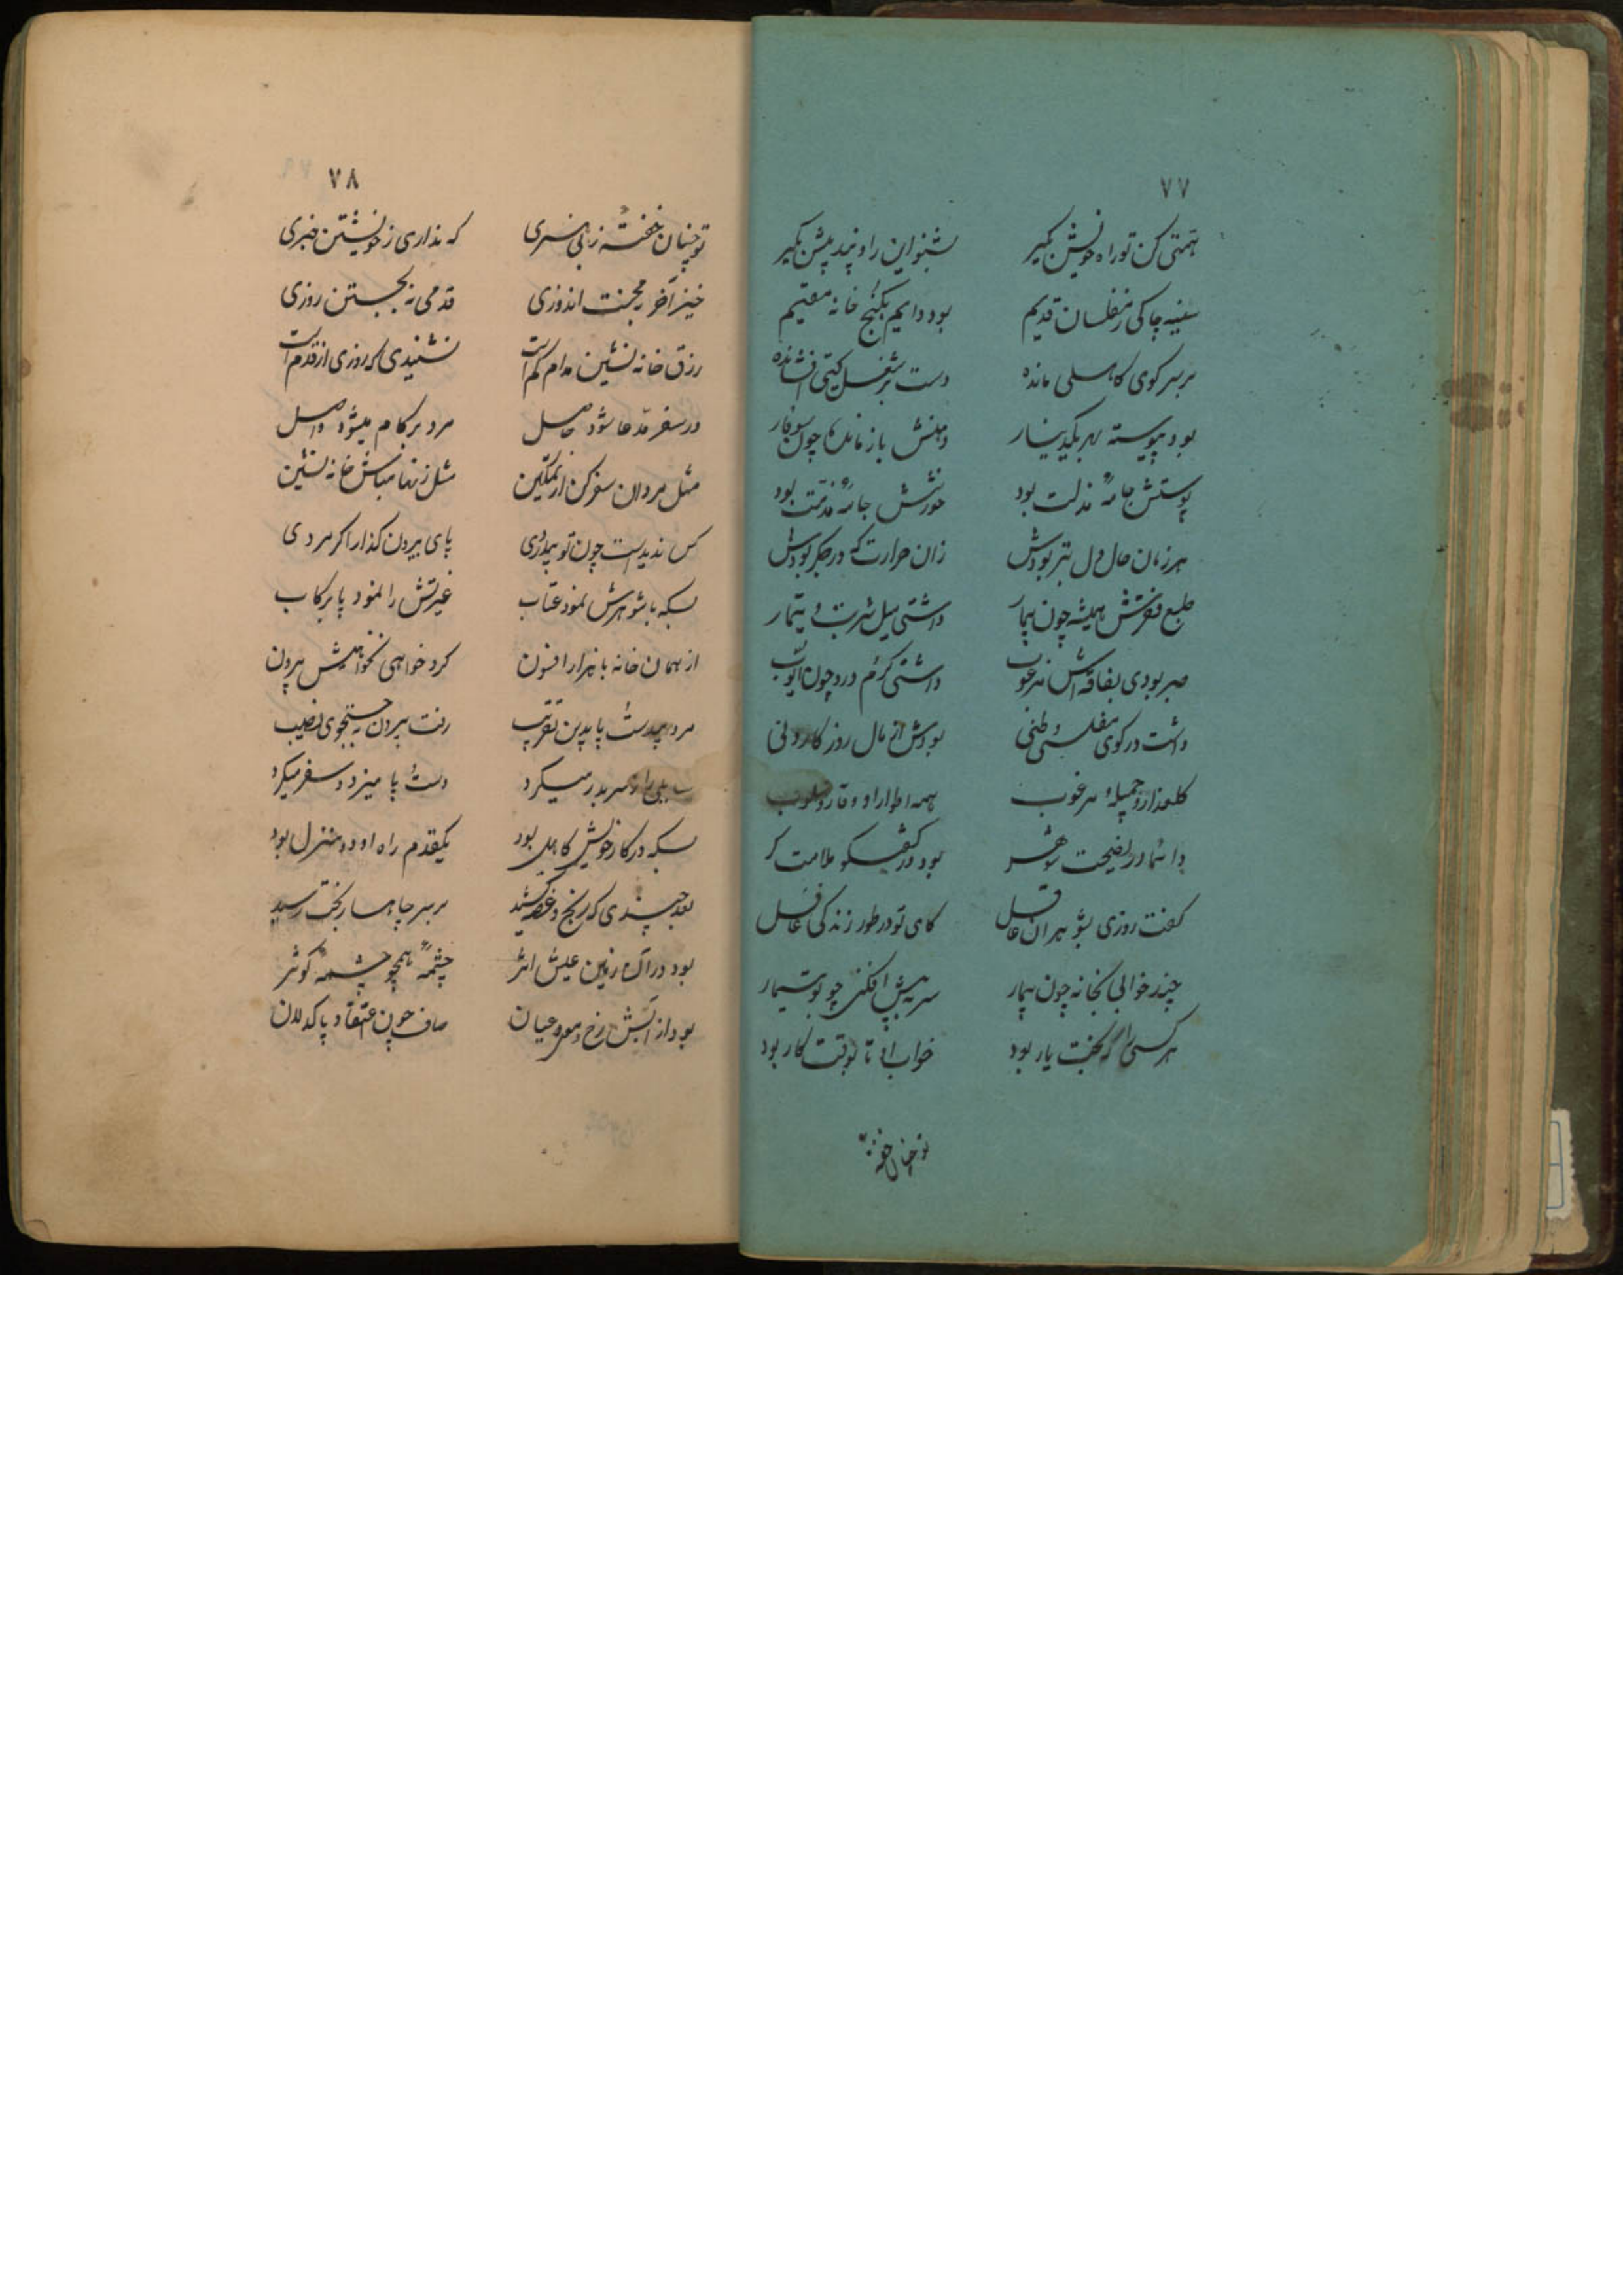 ۷۷
همتی کن تو راه خویش بگیر بشنو این را و پند پیش بگیر
سینه چاکی ز مفلسان قدیم بود دایم بکنج خانه مقیم
بر سر کوی کاهلی مانده دست بر شغل گیتی افشانده
بود پیوسته بهر یکدینار دهنش باز مانده چون سوفار
پوستش جامهٔ مذلت بود خورشش جامهٔ مذمت بود
هر زمان حال دل بتر بودش زان حرارت که در جگر بودش
طبع فقرش همیشه چون بیمار داشتی میل شربت دینار
صبر بودی بفاقه‌اش مرغوب داشتی کرم درد چون ایوب
داشت در کوی مفلسی وطنی بودش از مال روزگار زنی
گلعذار و جمیلهٔ مرغوب همه اطوار او وقار و خوب
دائما در نصیحت شوهر بود در گفتگو ملامت گر
گفت روزی بشوهر آن عاقل کای تو در طور زندگی غافل
چند خوابی بخانه چون بیمار سر به پیش افکنی چو بوتیمار
هر کسی را که بخت یار بود خواب او تا بوقت کار بود
تو چنان خفتهٔ
۷۸
تو چنان خفتهٔ ز بی هنری که نداری ز خویشتن خبری
خیز آخر به محنت اندوزی قدمی نه بجستن روزی
رزق خانه نشین مدام کم است نشنیدی که روزی از قدم است
در سفر مدعا شود حاصل مرد بر کام میشود واصل
مثل مردان سفر کن از تمکین مثل زنها مباش خانه نشین
کس ندیدست چون تو بیدردی پای بیرون گذار اگر مردی
بسکه با شوهرش نمود عتاب غیرتش را نمود پا برکاب
از همان خانه با هزار افسون کرد خواهی نخواهیش بیرون
مرد بیدست پا بدین تقریب رفت بیرون به جستجوی نصیب
را بدر میکرد دست پا میزد و سفر میکرد
بسکه در کار خویش کاهل بود یکقدم راه او دو منزل بود
بعد چندی که رنج و غصه کشید بر سر چاهسار بخت رسید
بود در آن زمین عیش اثر چشمهٔ همچو چشمهٔ کوثر
بود از آبش رخ عیان صاف چون اعتقاد پاکدلان